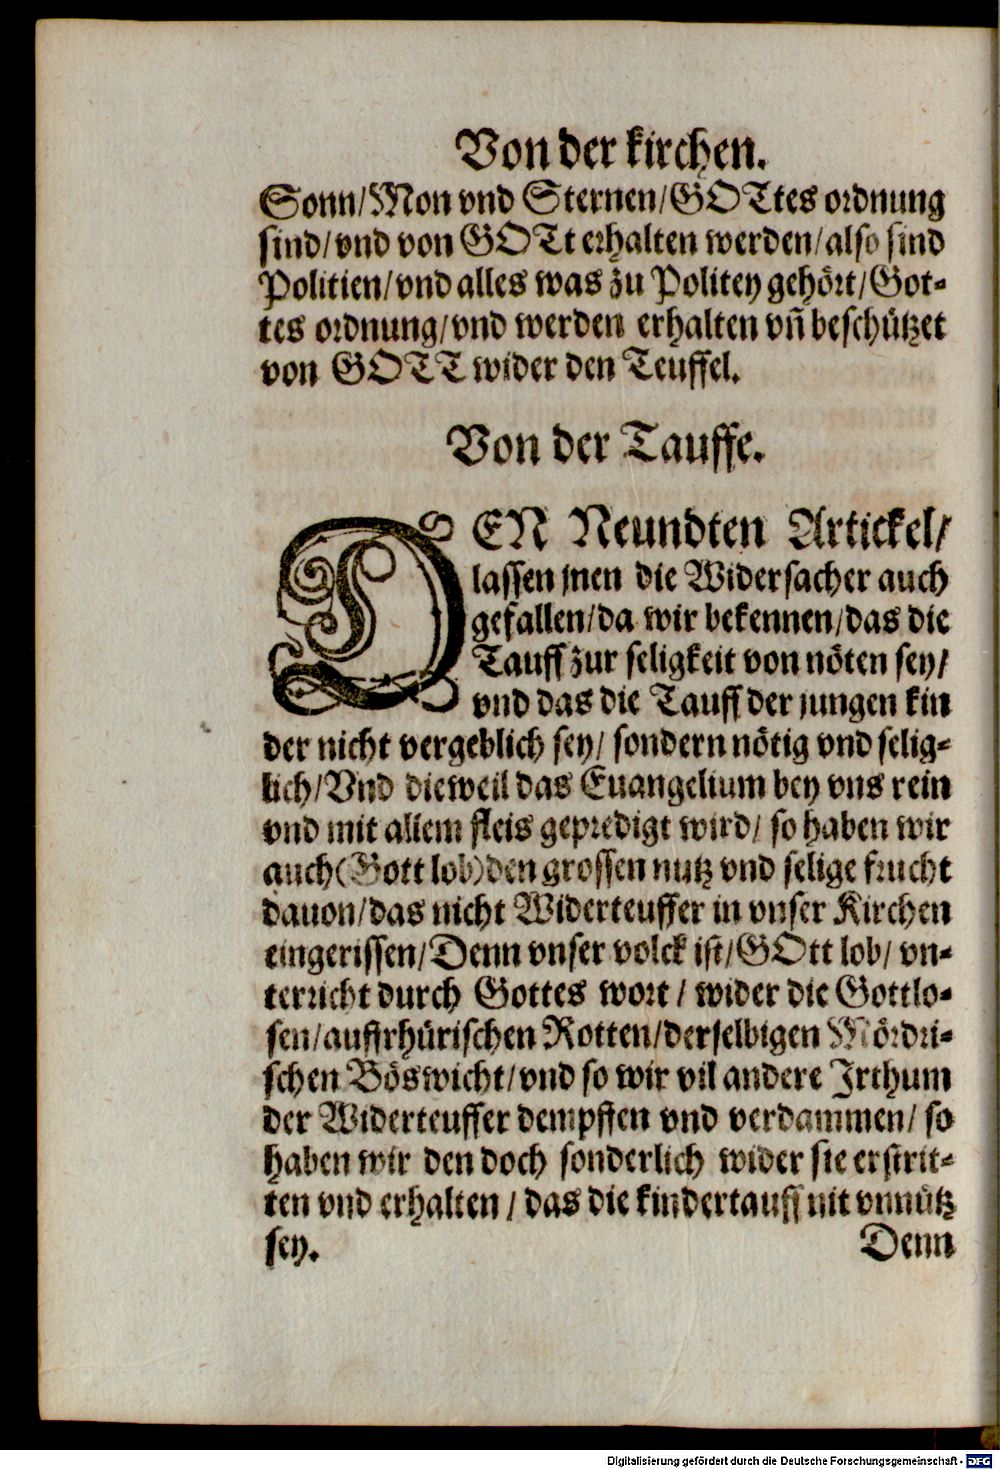 Von der kirchen.
Sonn/Mon vnd Sternen/GOTtes ordnung
sind/vnd von GOTt erhalten werden/also sind
Politien/vnd alles was zu Politey gehört/Got-
tes ordnung/vnd werden erhalten vñ beschützet
von GOTT wider den Teuffel.
Von der Tauffe.
DEN Neundten Artickel/
lassen jnen die Widersacher auch
gefallen/da wir bekennen/das die
Tauff zur seligkeit von nöten sey/
vnd das die Tauff der jungen kin
der nicht vergeblich sey/ sondern nötig vnd selig-
lich/Vnd dieweil das Euangelium bey vns rein
vnd mit allem fleis gepredigt wird/ so haben wir
auch(Gott lob)den grossen nutz vnd selige frucht
dauon/das nicht Widerteuffer in vnser Kirchen
eingerissen/Denn vnser volck ist/GOtt lob/ vn-
terricht durch Gottes wort / wider die Gottlo-
sen/auffrhürischen Rotten/derselbigen Mördri-
schen Böswicht/vnd so wir vil andere Jrthum
der Widerteuffer dempffen vnd verdammen/ so
haben wir den doch sonderlich wider sie erstrit-
ten vnd erhalten / das die kindertauff nit vnnütz
sey. Denn
Digitalisierung gefördert durch die Deutsche Forschungsgemeinschaft - DFG